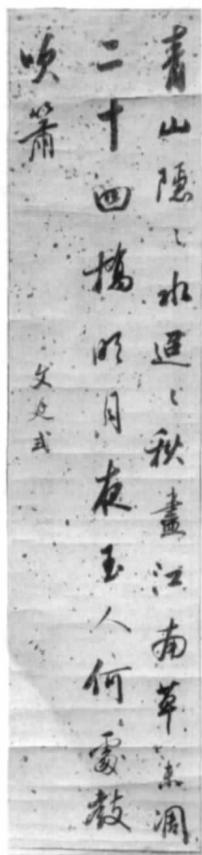 青山隱〻水迢〻秋盡江南草未凋
二十四橋明月夜玉人何處教
吹簫
文廷式